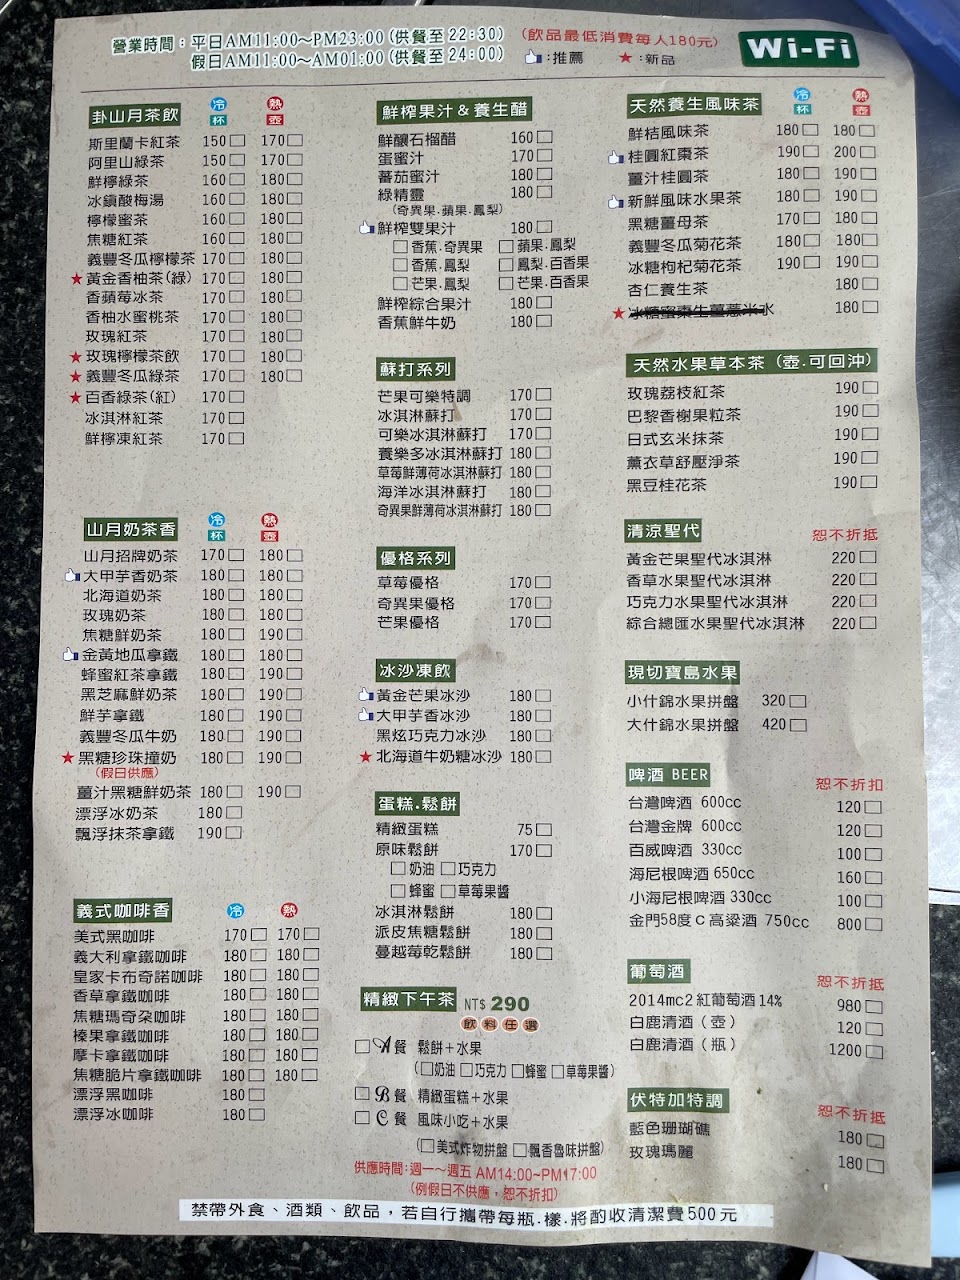 營業時間：平日AM11:00～PM23:00(供餐至22:30)
假日AM11:00～AM01:00(供餐至24:00)
(飲品最低消費每人180元)
：推薦 ★：新品
Wi-Fi
卦山月茶飲 冷杯 熱壺
斯里蘭卡紅茶 150□ 170□
阿里山綠茶 150□ 170□
鮮檸綠茶 160□ 180□
冰鎮酸梅湯 160□ 180□
檸檬蜜茶 160□ 180□
焦糖紅茶 160□ 180□
義豐冬瓜檸檬茶 170□ 180□
★黃金香柚茶(綠) 170□ 180□
香蘋莓冰茶 170□ 180□
香柚水蜜桃茶 170□ 180□
玫瑰紅茶 170□ 180□
★玫瑰檸檬茶飲 170□ 180□
★義豐冬瓜綠茶 170□ 180□
★百香綠茶(紅) 170□
冰淇淋紅茶 170□
鮮檸凍紅茶 170□
山月奶茶香 冷杯 熱壺
山月招牌奶茶 170□ 180□
大甲芋香奶茶 180□ 180□
北海道奶茶 180□ 180□
玫瑰奶茶 180□ 180□
焦糖鮮奶茶 180□ 190□
金黃地瓜拿鐵 180□ 180□
蜂蜜紅茶拿鐵 180□ 190□
黑芝麻鮮奶茶 180□ 190□
鮮芋拿鐵 180□ 190□
義豐冬瓜牛奶 180□ 190□
★黑糖珍珠撞奶 180□ 190□
(假日供應)
薑汁黑糖鮮奶茶 180□ 190□
漂浮冰奶茶 180□
飄浮抹茶拿鐵 190□
義式咖啡香 冷 熱
美式黑咖啡 170□ 170□
義大利拿鐵咖啡 180□ 180□
皇家卡布奇諾咖啡 180□ 180□
香草拿鐵咖啡 180□ 180□
焦糖瑪奇朵咖啡 180□ 180□
榛果拿鐵咖啡 180□ 180□
摩卡拿鐵咖啡 180□ 180□
焦糖脆片拿鐵咖啡 180□ 180□
漂浮黑咖啡 180□
漂浮冰咖啡 180□
鮮榨果汁＆養生醋
鮮釀石榴醋 160□
蛋蜜汁 170□
蕃茄蜜汁 180□
綠精靈 180□
(奇異果.蘋果.鳳梨)
鮮榨雙果汁 180□
□香蕉.奇異果 □蘋果.鳳梨
□香蕉.鳳梨 □鳳梨.百香果
□芒果.鳳梨 □芒果.百香果
鮮榨綜合果汁 180□
香蕉鮮牛奶 180□
蘇打系列
芒果可樂特調 170□
冰淇淋蘇打 170□
可樂冰淇淋蘇打 170□
養樂多冰淇淋蘇打 180□
草莓鮮薄荷冰淇淋蘇打 180□
海洋冰淇淋蘇打 180□
奇異果鮮薄荷冰淇淋蘇打 180□
優格系列
草莓優格 170□
奇異果優格 170□
芒果優格 170□
冰沙凍飲
黃金芒果冰沙 180□
大甲芋香冰沙 180□
黑炫巧克力冰沙 180□
★北海道牛奶糖冰沙 180□
蛋糕.鬆餅
精緻蛋糕 75□
原味鬆餅 170□
□奶油 □巧克力
□蜂蜜 □草莓果醬
冰淇淋鬆餅 180□
派皮焦糖鬆餅 180□
蔓越莓乾鬆餅 180□
精緻下午茶 NT$ 290
飲料任選
□A餐 鬆餅＋水果
(□奶油 □巧克力 □蜂蜜 □草莓果醬)
□B餐 精緻蛋糕＋水果
□C餐 風味小吃＋水果
(□美式炸物拼盤 □飄香魯味拼盤)
供應時間:週一～週五 AM14:00~PM17:00
(例假日不供應，恕不折扣)
天然養生風味茶 冷杯 熱壺
鮮桔風味茶 180□ 180□
桂圓紅棗茶 190□ 200□
薑汁桂圓茶 180□ 190□
新鮮風味水果茶 180□ 190□
黑糖薑母茶 170□ 180□
義豐冬瓜菊花茶 180□ 180□
冰糖枸杞菊花茶 190□ 190□
杏仁養生茶 180□
★冰糖蜜棗生薑薏米水 180□
天然水果草本茶（壺.可回沖）
玫瑰荔枝紅茶 190□
巴黎香榭果粒茶 190□
日式玄米抹茶 190□
薰衣草舒壓淨茶 190□
黑豆桂花茶 190□
清涼聖代 恕不折抵
黃金芒果聖代冰淇淋 220□
香草水果聖代冰淇淋 220□
巧克力水果聖代冰淇淋 220□
綜合總匯水果聖代冰淇淋 220□
現切寶島水果
小什錦水果拼盤 320□
大什錦水果拼盤 420□
啤酒 BEER 恕不折扣
台灣啤酒 600cc 120□
台灣金牌 600cc 120□
百威啤酒 330cc 100□
海尼根啤酒 650cc 160□
小海尼根啤酒 330cc 100□
金門58度Ｃ高粱酒 750cc 800□
葡萄酒 恕不折抵
2014mc2紅葡萄酒14% 980□
白鹿清酒（壺） 120□
白鹿清酒（瓶） 1200□
伏特加特調 恕不折抵
藍色珊瑚礁 180□
玫瑰瑪麗 180□
禁帶外食、酒類、飲品，若自行攜帶每瓶.樣.將酌收清潔費500元